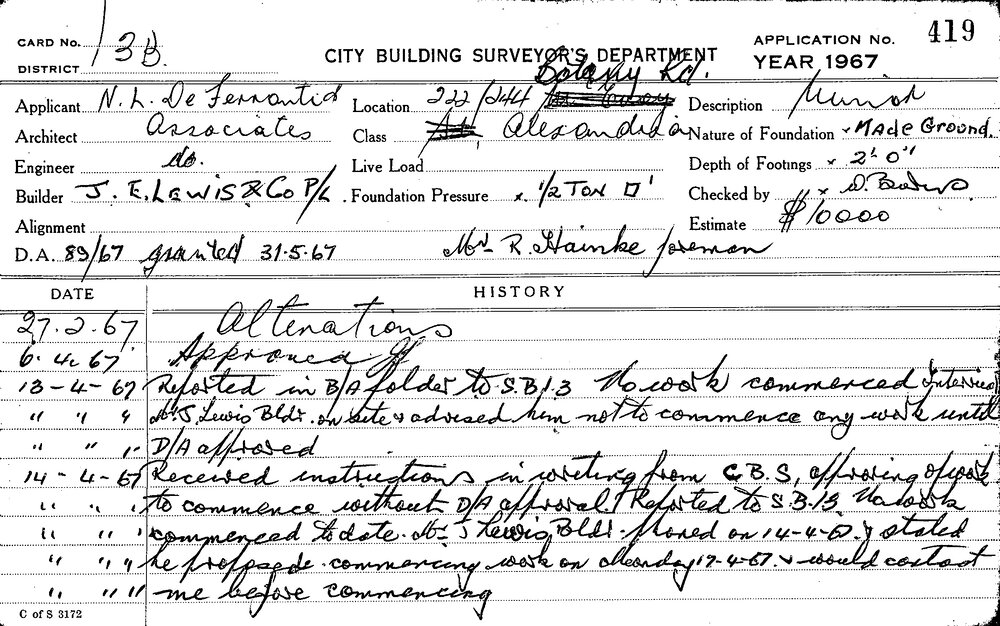 CARD No. 13B.
CITY BUILDING SURVEYOR'S DEPARTMENT
APPLICATION No. 419
DISTRICT
YEAR 1967
Botany Rd.
Applicant N. L. De Ferrantis Location 222/244 Description Minor
Architect Associates Class Alexandria Nature of Foundation × Made Ground.
Engineer do. Live Load Depth of Footings × 2' 0"
Builder J. E. Lewis & Co P/L. Foundation Pressure × 1/2 Ton □' Checked by × D.
Alignment Estimate $10000
D.A. 89/67 granted 31.5.67 Mr R. Hainke foreman
DATE HISTORY
27.2.67 Alterations
6.4.67 Approved
13-4-67 Reported in B/A folder to S.B.13 No work commenced &
" " " Mr J. Lewis Bldr. on site & advised him not to commence any work until
" " " D/A approved
14-4-67 Received instructions in writing from C.B.S, approving of work
" " " to commence without D/A approval. Reported to S.B.13 No work
" " " commenced to date. Mr J Lewis Bldr. phoned on 14-4-67 & stated
" " " he proposed commencing work on Monday 17-4-67 & would contact
" " " me before commencing
C of S 3172